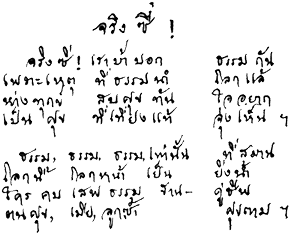 จริง ซี่ !
จริง ซี่ ! เรา บ้า บอก ธรรม กัน
เพราะเหตุ ที่ ธรรม นำ โลก แล้
ห่าง ทุกข์ สบ สุข ทัน ใจ อยาก
เป็น สุข ที่ เที่ยง แท้ ลุ่ง เห็น ฯ
ธรรม, ธรรม, ธรรม, เท่านั้น ที่ สมาน
โลก นี้ โลก หน้า เป็น ยิ่ง น้ำ
ใคร คบ เสพ ธรรม คู่ชื่น
ตน สุข, เมีย, ลูก ซ้ำ สุข ตาม ฯ